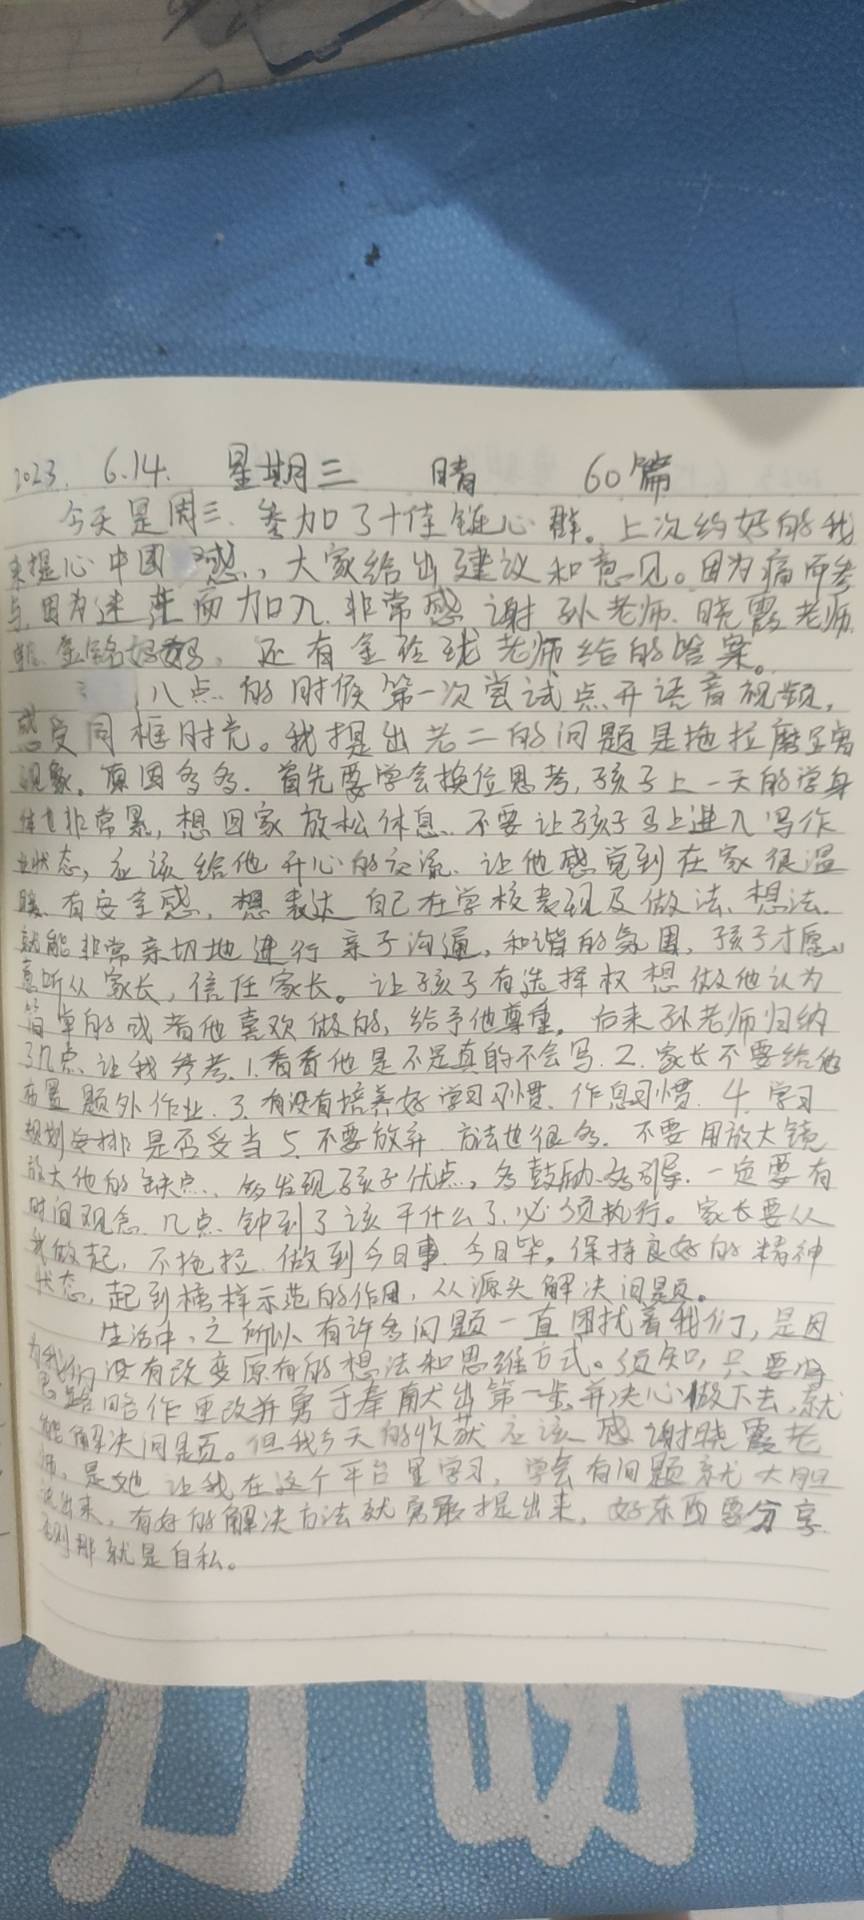 2023. 6.14. 星期三 晴 60篇
今天是周三.参加了十佳链心群。上次约好的我
来提心中困惑,大家给出建议和意见。因为痛而参
与.因为迷茫而加入.非常感谢孙老师.晓霞老师
金铭妈妈,还有金玲珑老师给的答案。
八点的时候第一次尝试点开语音视频,
感受同框时光。我提出老二的问题是拖拉磨蹭
现象.原因多多.首先要学会换位思考,孩子上一天的学身
体也非常累,想回家放松休息.不要让孩子马上进入写作
业状态,应该给他开心的交流.让他感觉到在家很温
暖.有安全感,想表达自己在学校表现及做法、想法.
就能非常亲切地进行亲子沟通,和谐的氛围,孩子才愿
意听从家长,信任家长。让孩子有选择权想做他认为
简单的或者他喜欢做的,给予他尊重。后来孙老师归纳
了几点让我参考.1.看看他是不是真的不会写.2.家长不要给他
布置额外作业.3.有没有培养好学习习惯、作息习惯.4.学习
规划安排是否妥当5.不要放弃方法也很多.不要用放大镜
放大他的缺点、多发现孩子优点,多鼓励.多引导.一定要有
时间观念.几点钟到了该干什么了.必须执行。家长要从
我做起,不拖拉.做到今日事.今日毕。保持良好的精神
状态,起到榜样示范的作用,从源头解决问题。
生活中,之所以有许多问题一直困扰着我们,是因
为我们没有改变原有的想法和思维方式。须知,只要将
思路略作更改并勇于奉献出第一步,并决心做下去,就
能解决问题。但我今天的收获应该感谢晓霞老
师,是她让我在这个平台里学习,学会有问题就大胆
说出来,有好的解决方法就勇敢提出来,好东西要分享.
否则那就是自私。